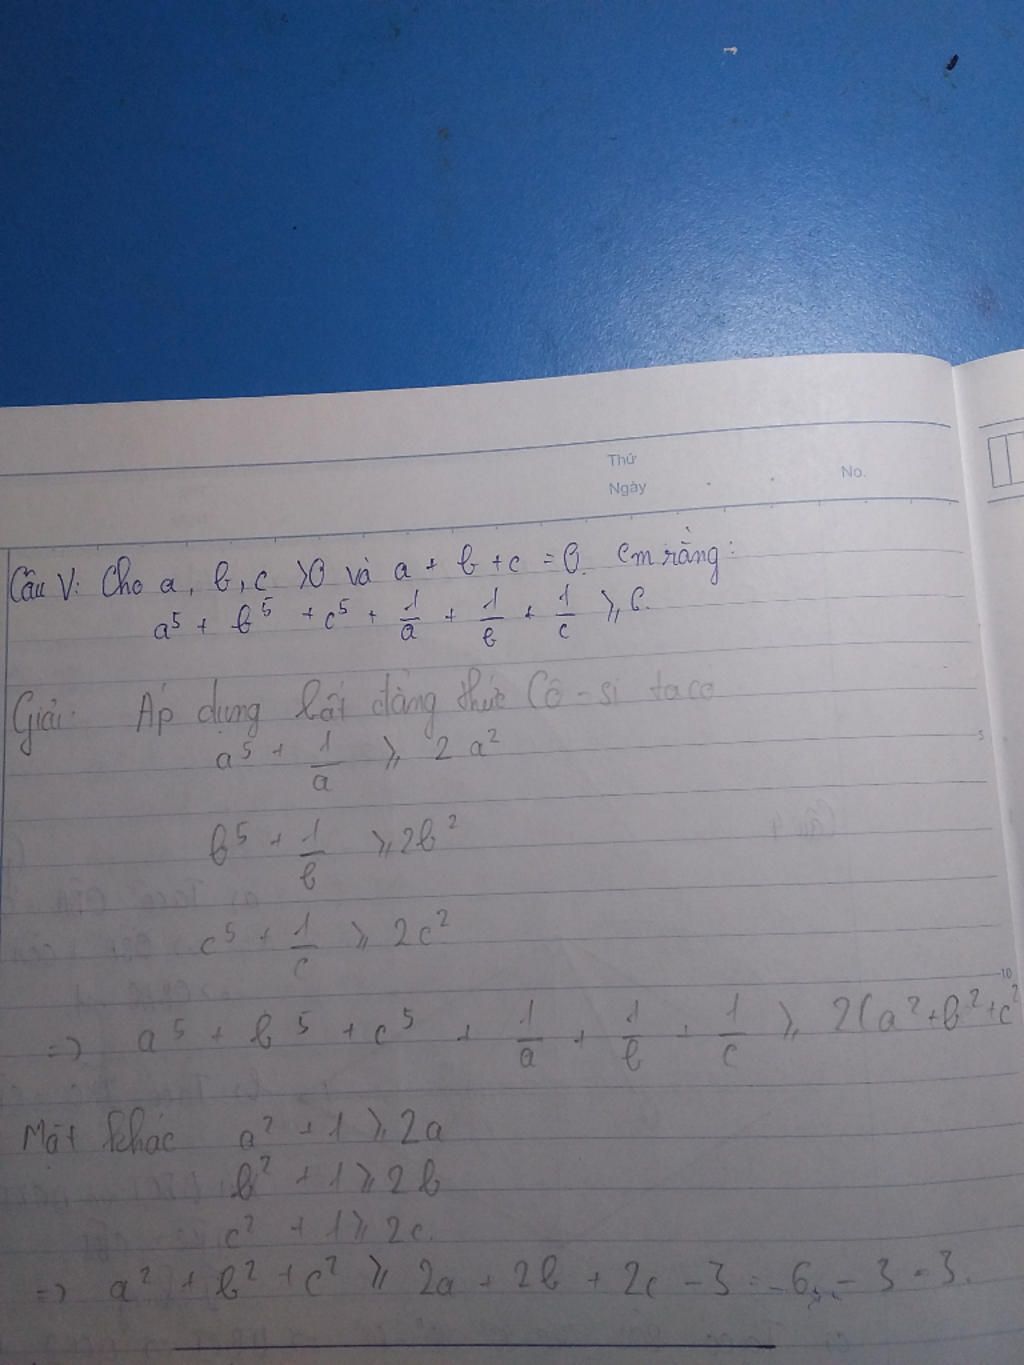 Thứ
Ngày
No.
Câu V: Cho a, b, c >0 và a + b + c = 0. cm rằng:
a⁵ + b⁵ + c⁵ + 1/a + 1/b + 1/c ⩾ 6.
Giải: Áp dụng bất đẳng thức Cô-si ta có
a⁵ + 1/a ⩾ 2a²
5
b⁵ + 1/b ⩾ 2b²
c⁵ + 1/c ⩾ 2c²
10
=> a⁵ + b⁵ + c⁵ + 1/a + 1/b + 1/c ⩾ 2(a²+b²+c²
Mặt khác a² + 1 ⩾ 2a
b² + 1 ⩾ 2b
c² + 1 ⩾ 2c.
=> a² + b² + c² ⩾ 2a + 2b + 2c - 3 = 6 - 3 = 3.